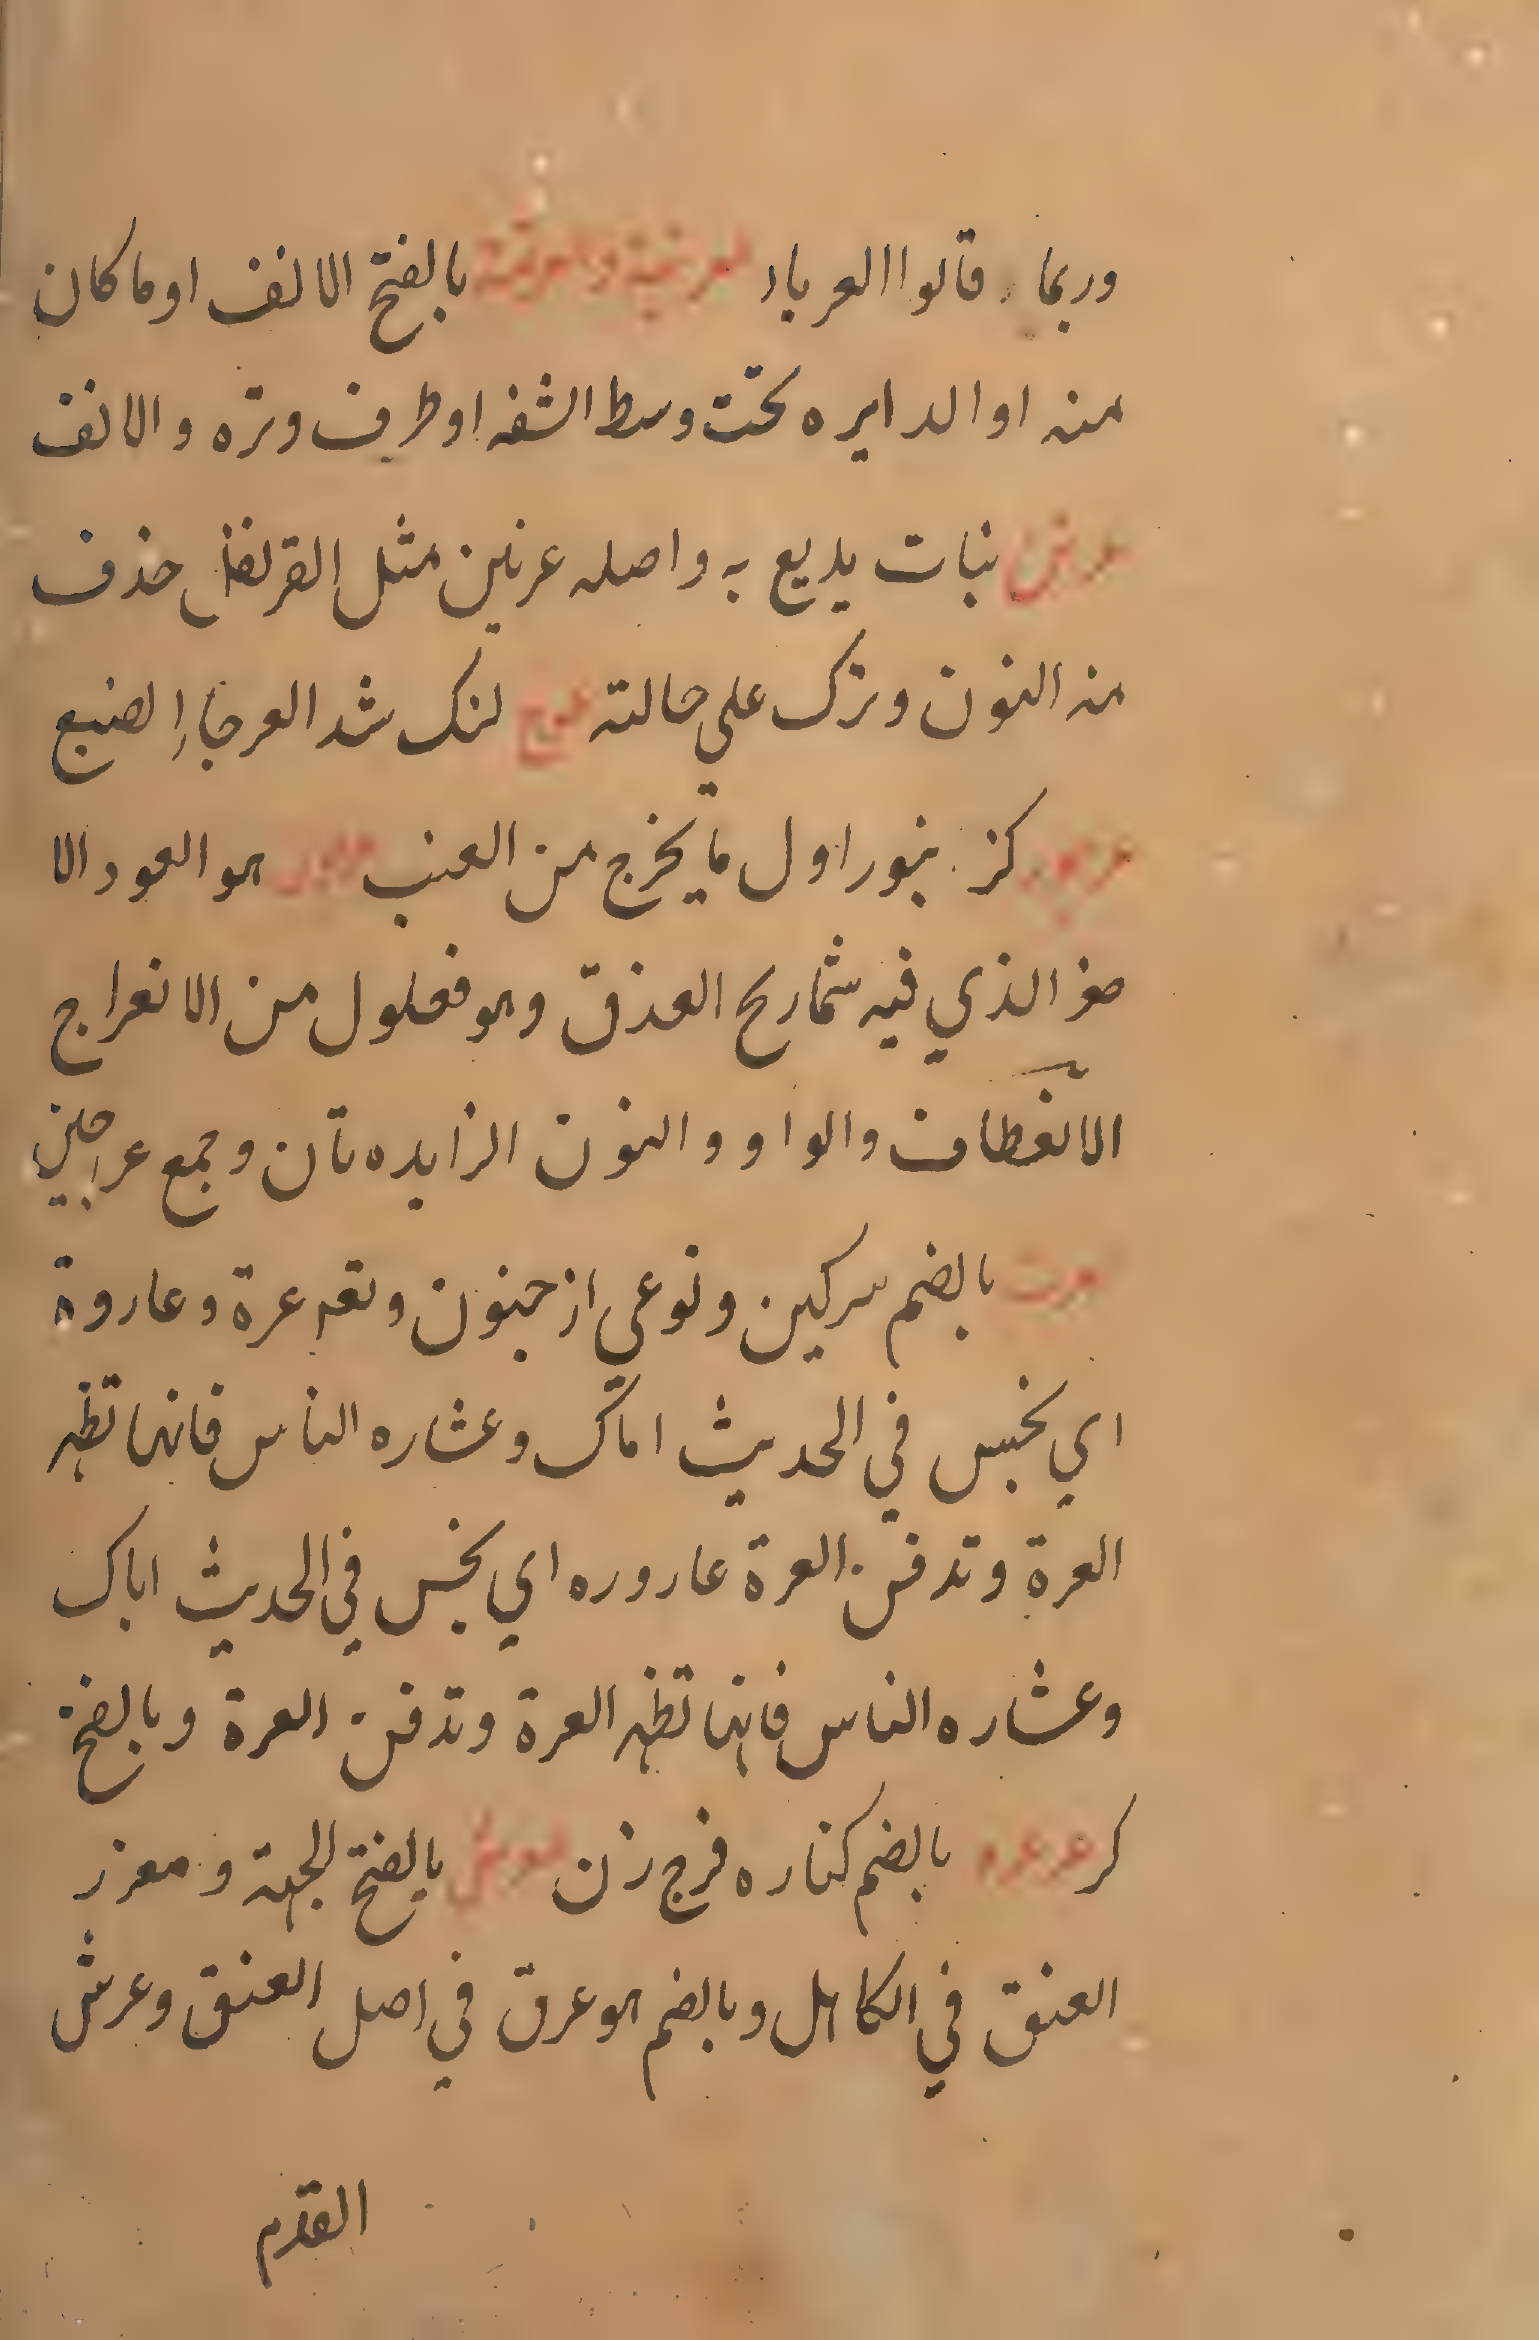 وربما قالوا العرباد العرتبة والعرتمة بالفتح الانف او ما كان
منه او الدايره تحت وسط الشفه او طرف وتره والانف
عرتن نبات يدبغ به واصله عرنتن مثل القرنفل حذف
منه النون وترك علي حالته عرج لنك شد العرجاء الضبع
كز نبور اول ما يخرج من العنب هو العود الا
صفر الذي فيه شماريخ العذق وهو فعلول من الانعراج
الانعطاف والواو والنون الزايده تان وجمع عراجين
عرت بالضم سركين ونوعي از جنون وتعه عرة وعاروة
اي نجس في الحديث اماك وعشاره الناس فانها تظهر
العرة وتدفن العرة عاروره اي نجس في الحديث اباك
وعشاره الناس فانها تظهر العرة وتدفن العرة وبالفتح
كر عرعره بالضم كناره فرج زن بالفتح الجهة ومعزر
العنق في الكاهل وبالضم هو عرق في اصل العنق وعرش
القدم